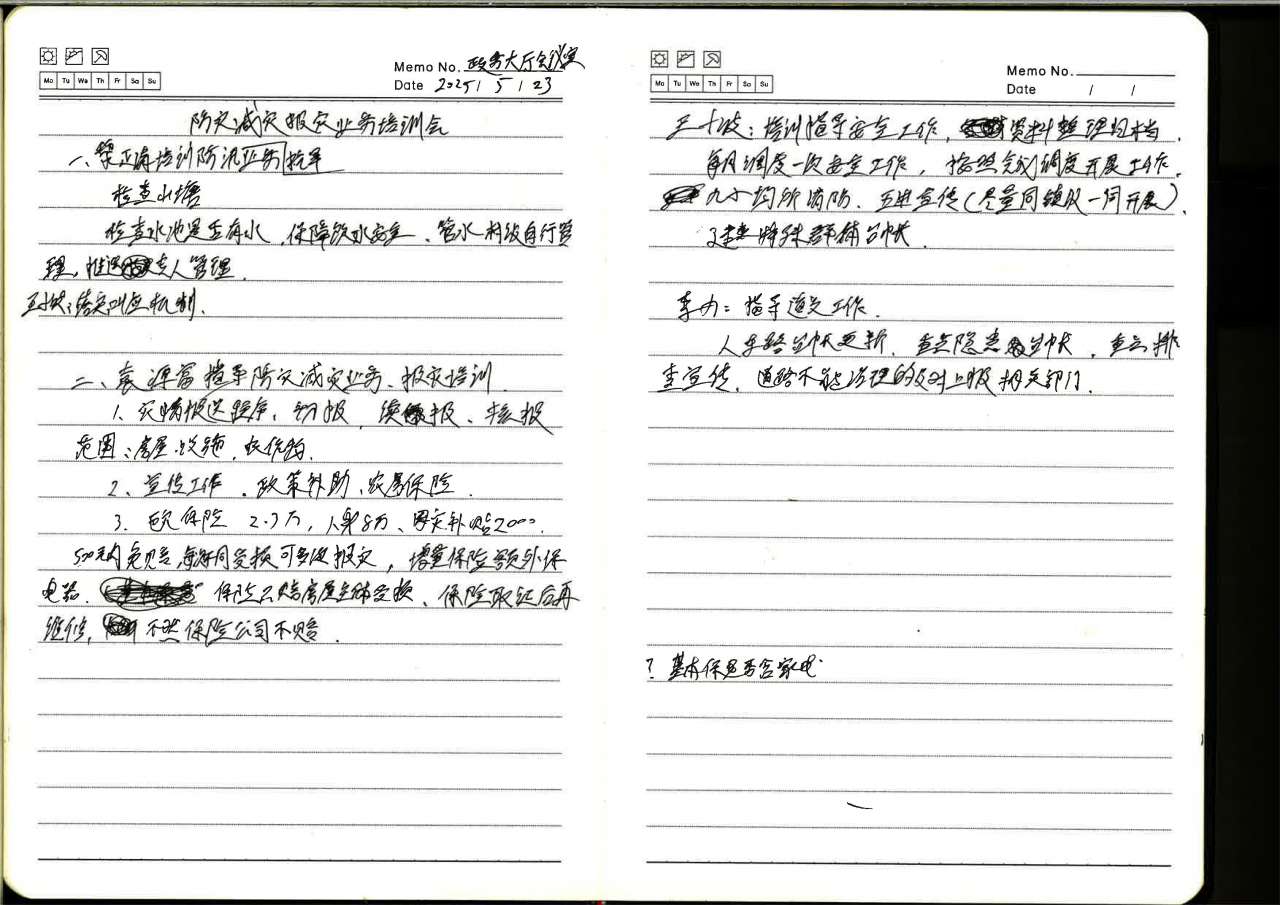 Mo Tu We Th Fr Sa Su
Memo No. 政务大厅会议室
Date 2025 / 5 / 23
防灾减灾报灾业务培训会
一、梁正海培训防汛业务抗旱
检查山塘
检查水池是否有水，保障饮水安全、管水村级自行管
理，推选专人管理.
落实叫应机制.
二、袁泽富指导防灾减灾业务、报灾培训.
1、灾情报送程序，初报，续报、核报
范围：房屋、设施，农作物.
2、宣传工作。政策补助、农房保险.
3. 农房保险 2.7万，人身8万、固定补贴2000.
500元内免赔，每年同受损可多次报灾，增量保险额外保
电器. 保险只赔房屋主体受损、保险取证后再
维修，不然保险公司不赔.
Mo Tu We Th Fr Sa Su
Memo No.
Date / /
培训指导安全工作，资料整理归档.
每月调度一次安全工作，按照调度开展工作.
九小场所消防、五进宣传(尽量同镇级一同开展).
特殊群体台帐.
李力：指导道交工作.
人车路台帐更新，重点隐患台帐，重点排
查宣传，道路不能治理的及时上报相关部门.
? 基本保是否含家电